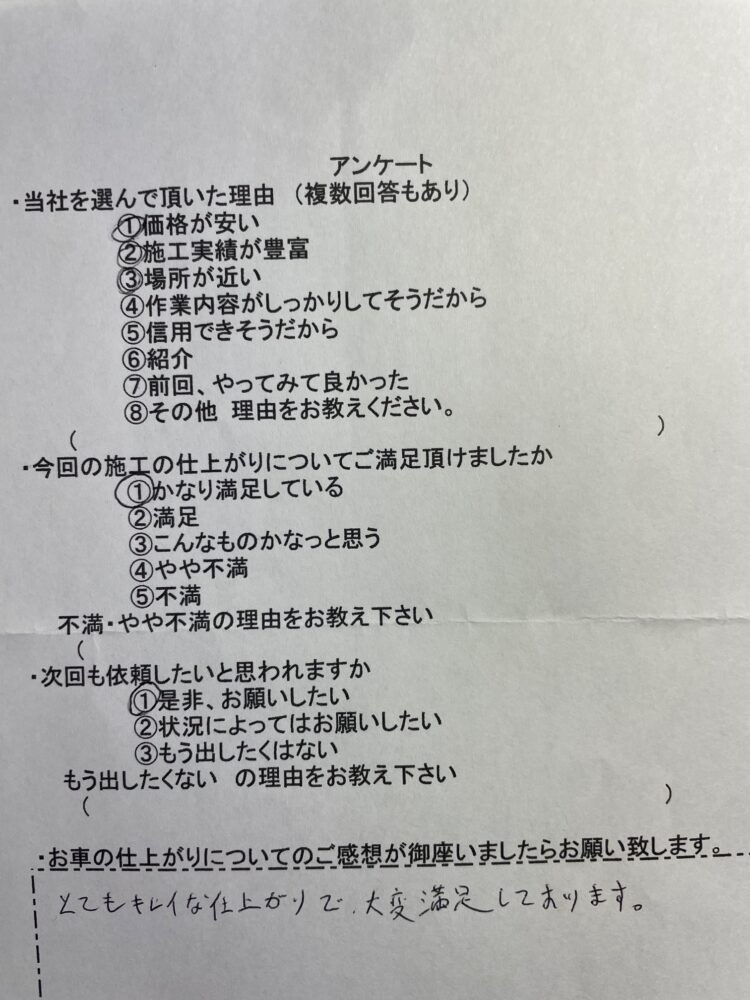 アンケート
・当社を選んで頂いた理由 （複数回答もあり）
①価格が安い
②施工実績が豊富
③場所が近い
④作業内容がしっかりしてそうだから
⑤信用できそうだから
⑥紹介
⑦前回、やってみて良かった
⑧その他 理由をお教えください。
（ ）
・今回の施工の仕上がりについてご満足頂けましたか
①かなり満足している
②満足
③こんなものかなっと思う
④やや不満
⑤不満
不満・やや不満の理由をお教え下さい
（
・次回も依頼したいと思われますか
①是非、お願いしたい
②状況によってはお願いしたい
③もう出したくはない
もう出したくない の理由をお教え下さい
（ ）
・お車の仕上がりについてのご感想が御座いましたらお願い致します。
とてもキレイな仕上がりで、大変満足しております。